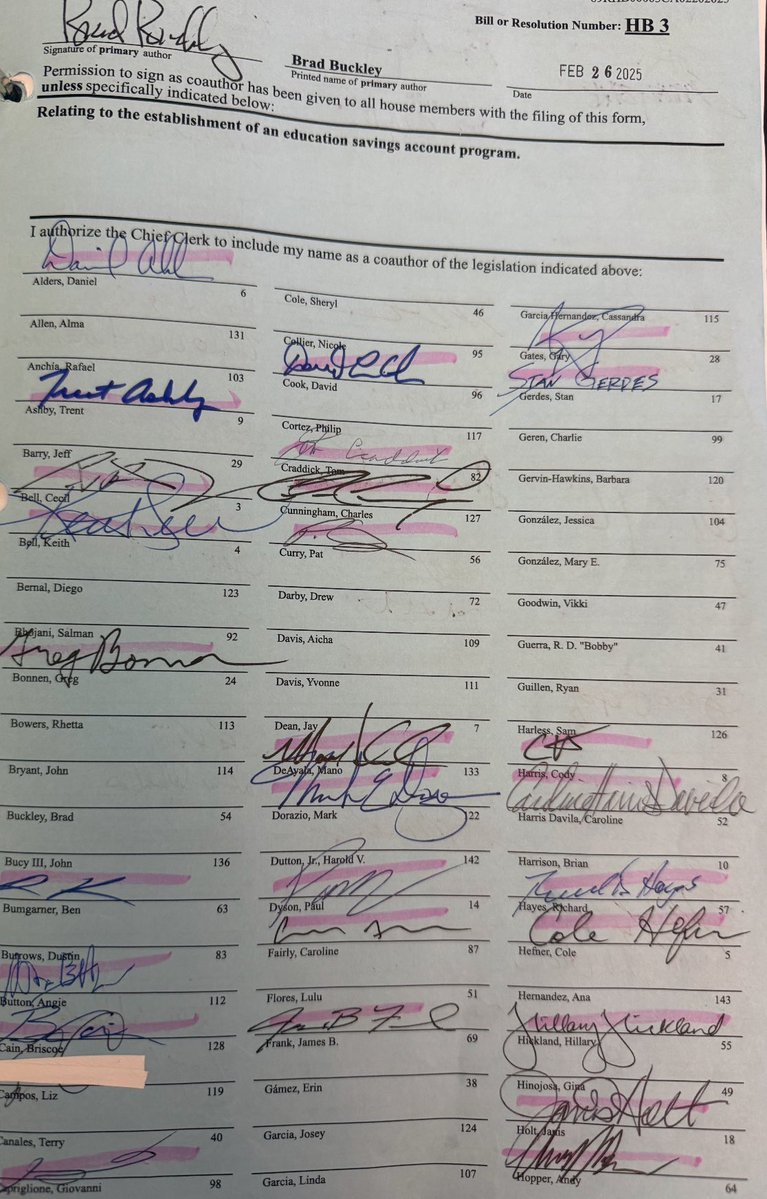 Bill or Resolution Number: HB 3
Brad Buckley
FEB 26 2025
Signature of primary author
Printed name of primary author
Date
Permission to sign as coauthor has been given to all house members with the filing of this form,
unless specifically indicated below:
Relating to the establishment of an education savings account program.
I authorize the Chief Clerk to include my name as a coauthor of the legislation indicated above:
Alders, Daniel 6
Allen, Alma 131
Anchía, Rafael 103
Trent Ashby
Ashby, Trent 9
Barry, Jeff 29
Bell, Cecil 3
Bell, Keith 4
Bernal, Diego 123
Bhojani, Salman 92
Greg Bonnen
Bonnen, Greg 24
Bowers, Rhetta 113
Bryant, John 114
Buckley, Brad 54
Bucy III, John 136
Bumgarner, Ben 63
Burrows, Dustin 83
Button, Angie 112
Cain, Briscoe 128
Campos, Liz 119
Canales, Terry 40
Capriglione, Giovanni 98
Cole, Sheryl 46
Collier, Nicole 95
Cook, David 96
Cortez, Philip 117
Craddick, Tom 82
Cunningham, Charles 127
Curry, Pat 56
Darby, Drew 72
Davis, Aicha 109
Davis, Yvonne 111
Dean, Jay 7
DeAyala, Mano 133
Dorazio, Mark 122
Dutton, Jr., Harold V. 142
Dyson, Paul 14
Fairly, Caroline 87
Flores, Lulu 51
Frank, James B. 69
Gámez, Erin 38
Garcia, Josey 124
Garcia, Linda 107
Garcia Hernandez, Cassandra 115
Gates, Gary 28
STAN GERDES
Gerdes, Stan 17
Geren, Charlie 99
Gervin-Hawkins, Barbara 120
González, Jessica 104
González, Mary E. 75
Goodwin, Vikki 47
Guerra, R. D. "Bobby" 41
Guillen, Ryan 31
Harless, Sam 126
Harris, Cody 8
Caroline Harris Davila
Harris Davila, Caroline 52
Harrison, Brian 10
Hayes, Richard 57
Cole Hefner
Hefner, Cole 5
Hernandez, Ana 143
Hillary Hickland
Hickland, Hillary 55
Hinojosa, Gina 49
Janis Holt
Holt, Janis 18
Hopper, Andy 64